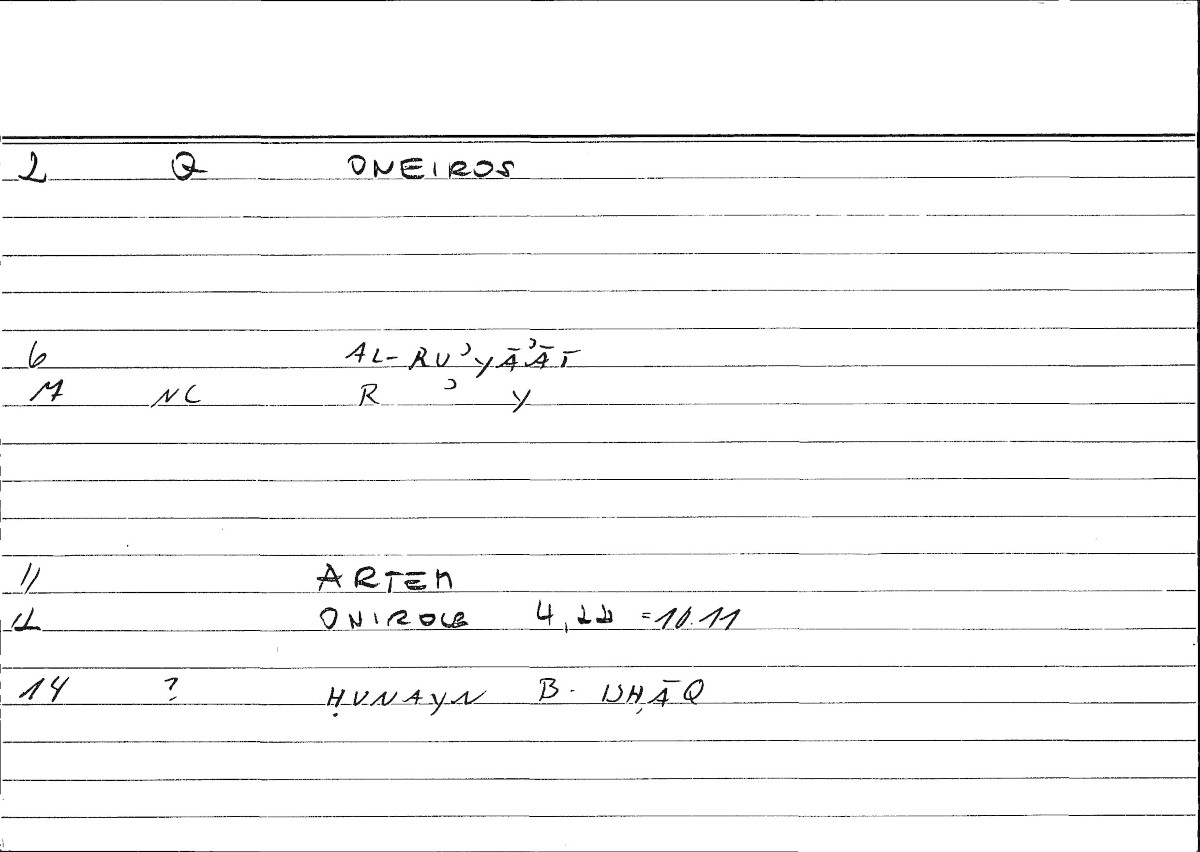 2 Q ONEIROS
6 AL-RUʾYĀʾĀT
7 NC R ʾ Y
11 ARTEM
12 ONIROCR 4,22 =10.11
14 ? ḤUNAYN B. ISḤĀQ